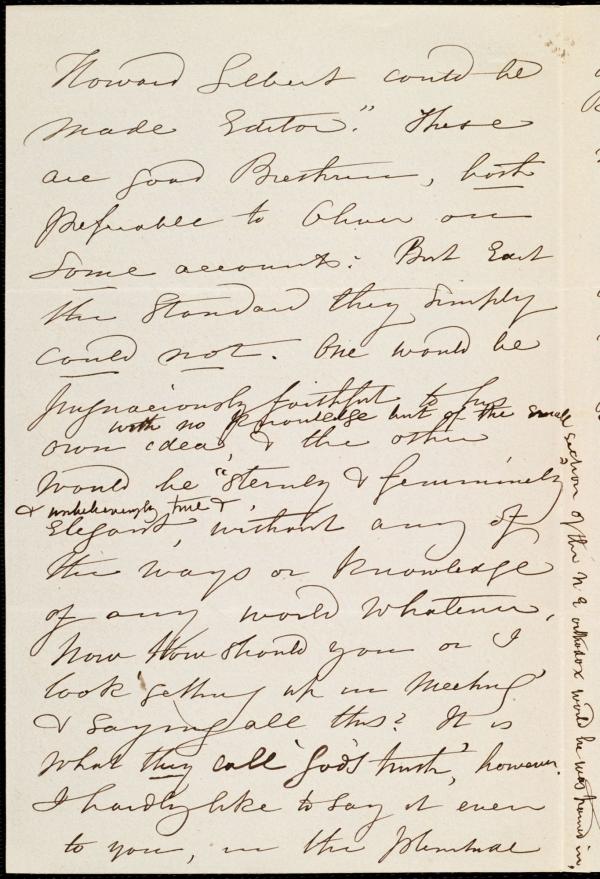 Howard Gilbert could be
made Editor." These
are good Brethren, both
preferable to Oliver on
some accounts: But Edit
the Standard they simply
could not. One would be
pugnaciously faithful to his
with no knowledge but of the small
own idea, & the other
would be "sternly & femininely
& unbelievingly true &
Elegant, without any of
the ways or knowledge
of any world whatever.
Now How should you or I
look 'getting up in Meeting'
& saying all this? It is
what they call 'God's truth', however.
I hardly like to say it even
to you, in the plenitude
section of the N E orthodox world he was trained in,